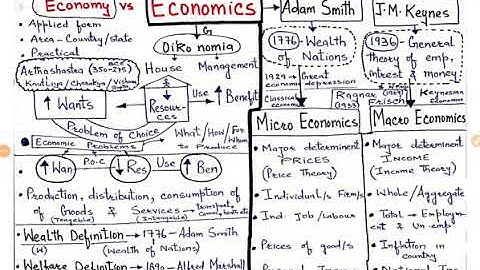 Economy vs Economics
Adam Smith
J.M. Keynes
• Applied form
• Area - Country/state
• Practical
G
Oikonomia
House Management
Arthashastra (BCE 350-275)
Kautilya/Chanakya/Vishnu
↑ Wants
Resources
Use ↑ Benefit
Problem of Choice
• Economic Problems
What/How/For Whom
to Produce
↑ Wan P.o.C ↓ Res Use ↑ Ben
• Production, distribution, consumption of
of Goods & Services
(Tangeable) (Intangeable)
• Wealth Definition → 1776 - Adam Smith
(W) (Wealth of Nations)
• Welfare Definition → 1890 - Alfred Marshall
1776 - Wealth
of Nations
1929 → Great
economic depression
Classical
1936 - General
theory of emp.
Interest & money
Keynesian Economics
Ragnar Frisch
(1933)
Micro Economics
• Major determinent
PRICES
(Price Theory)
• Individual/s Firm/s
• Ind. Job/Labour
• Prices of good/s
Macro Economics
• Major determinent
INCOME
(Income Theory)
• Whole/Aggregate
• Total → Employm-
ent & Un emp
• Inflation in
country